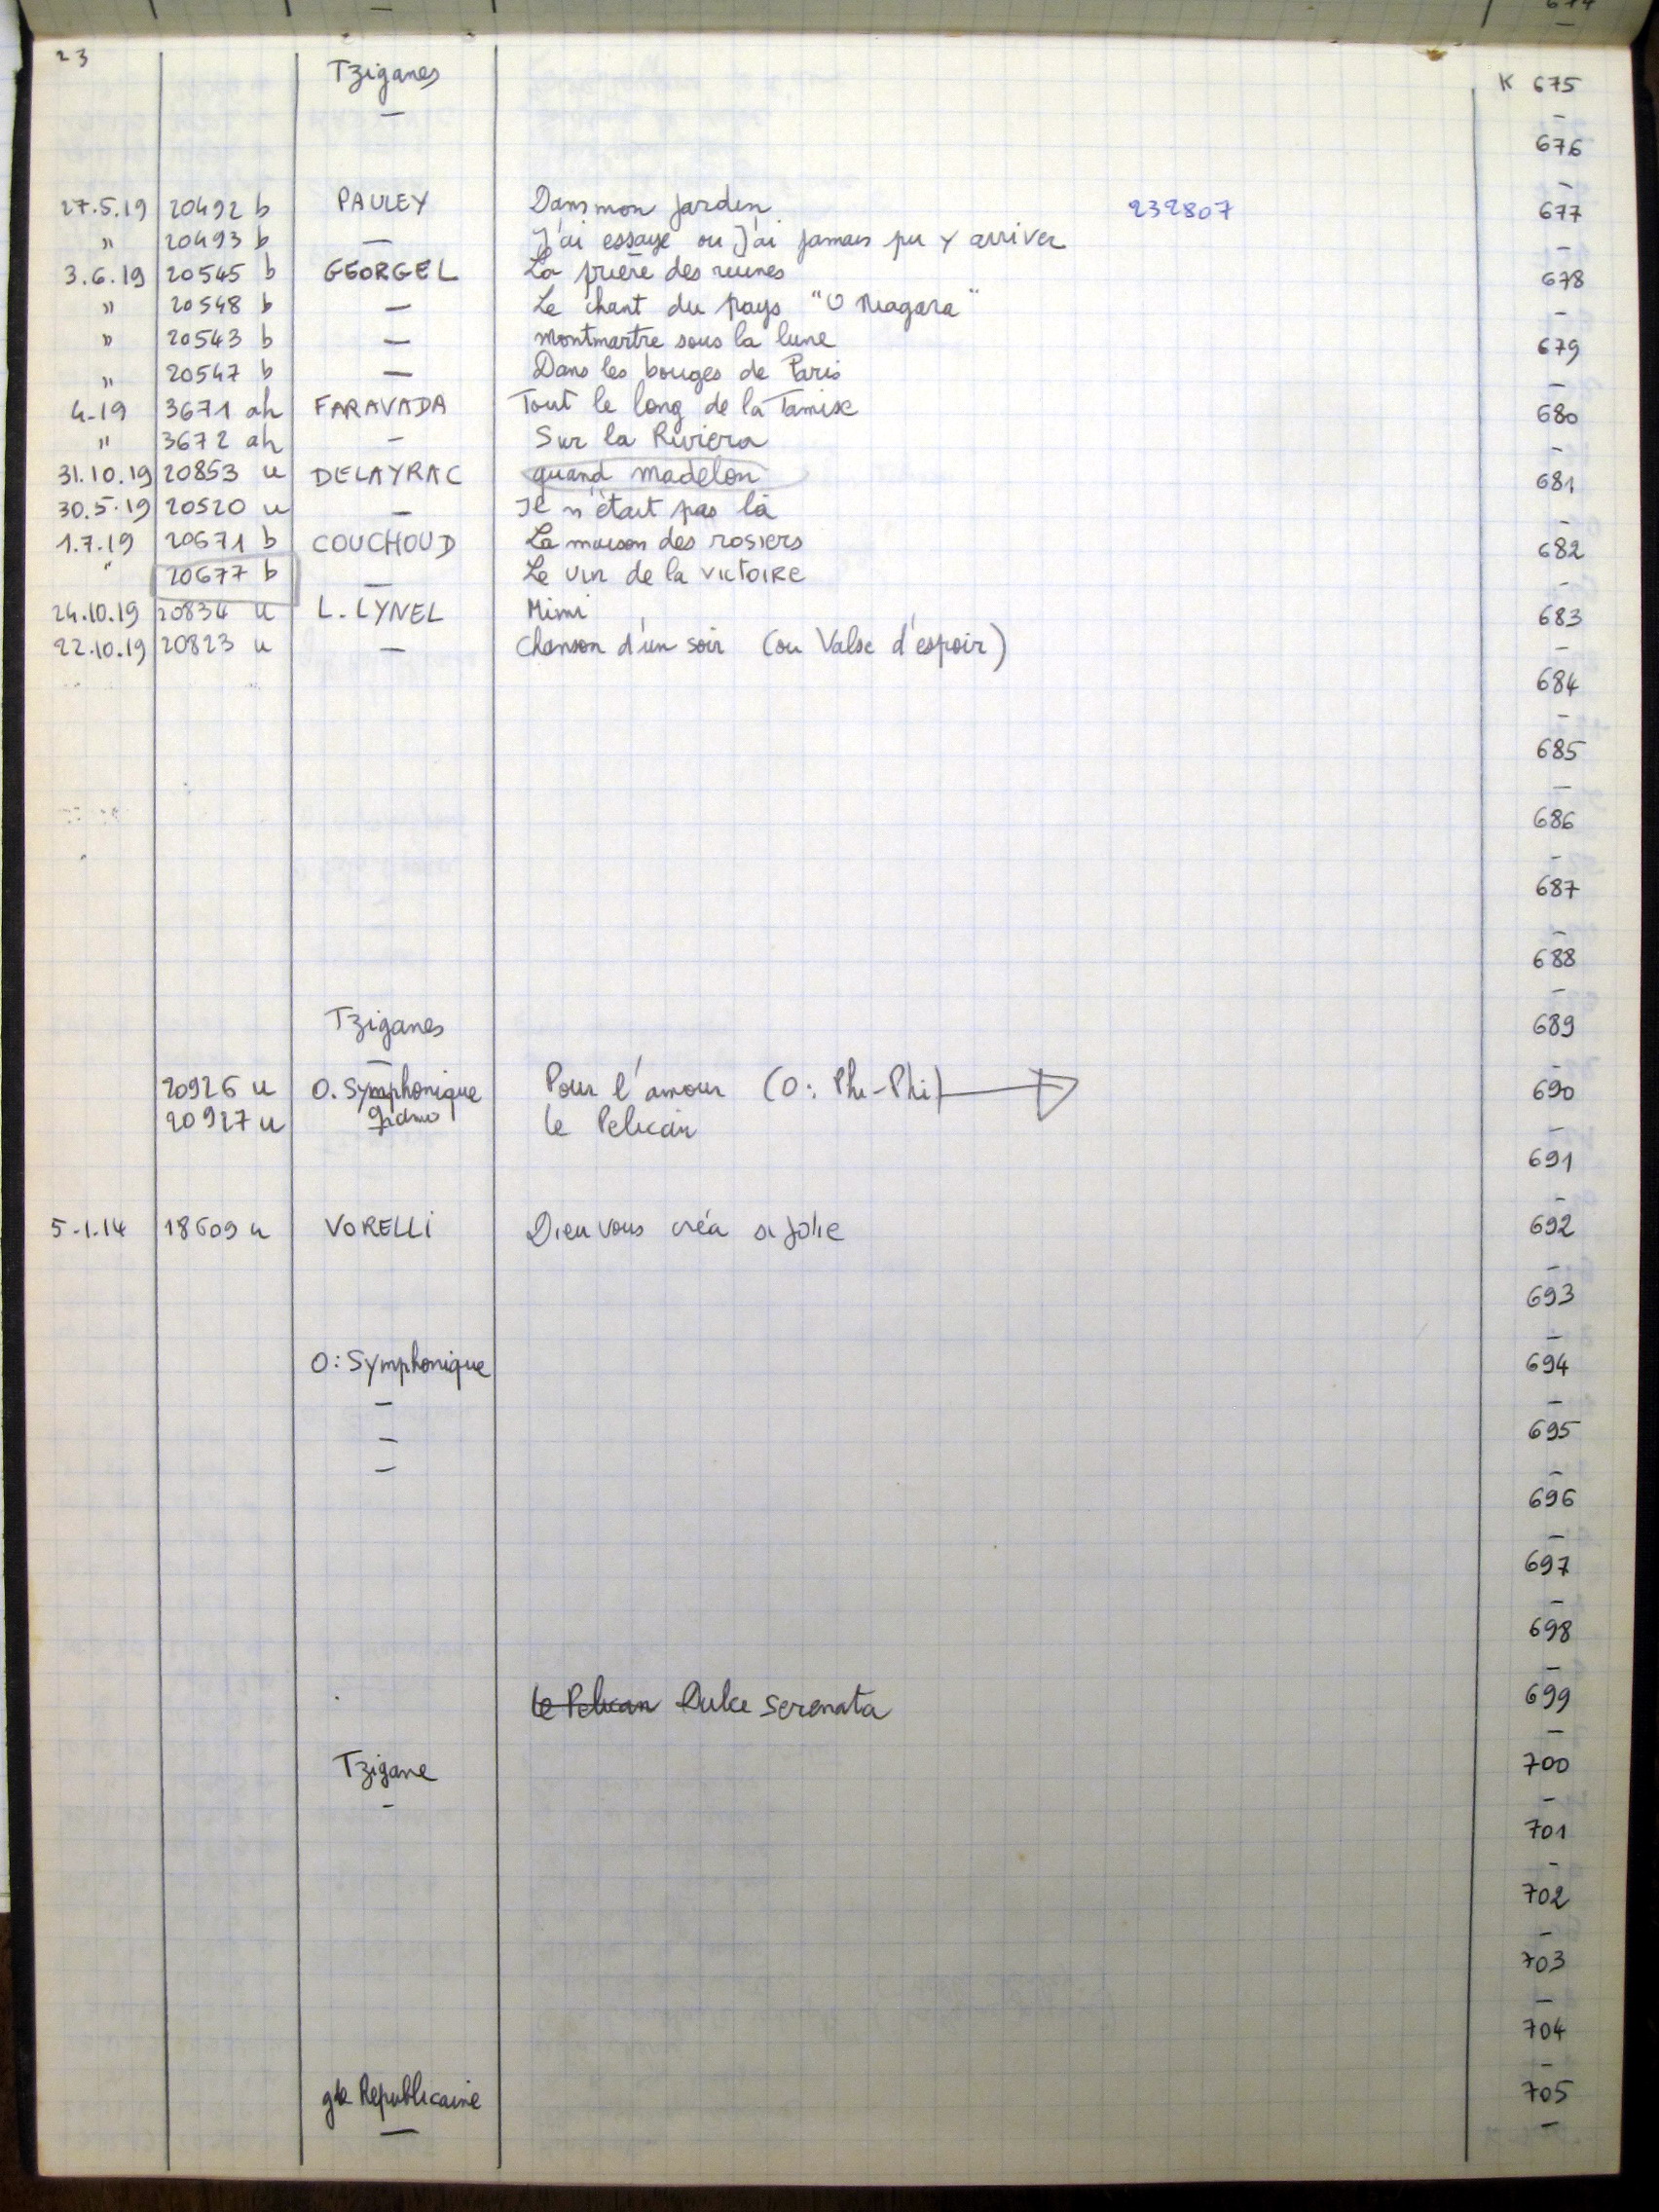 674
—
23 Tziganes K 675
— —
676
—
27.5.19 20492 b PAULEY Dans mon jardin 232807 677
" 20493 b — J'ai essayé ou J'ai jamais pu y arriver —
3.6.19 20545 b GEORGEL La prière des ruines 678
" 20548 b — Le chant du pays "O Niagara" —
" 20543 b — Montmartre sous la lune 679
" 20547 b — Dans les bouges de Paris —
4-19 3671 ah FARAVADA Tout le long de la Tamise 680
" 3672 ah — Sur la Riviera —
31.10.19 20853 u DELAYRAC quand Madelon 681
30.5.19 20520 u — Il n'était pas là —
1.7.19 20671 b COUCHOUD La maison des rosiers 682
" 20677 b — Le vin de la VICTOIRE —
24.10.19 20834 u L. LYNEL Mimi 683
22.10.19 20823 u — Chanson d'un soir (ou Valse d'espoir) —
684
—
685
—
686
—
687
—
688
—
Tziganes 689
— —
20926 u O. Symphonique Pour l'amour (O: Phi-Phi) 690
20927 u Le Pelican —
691
—
5-1.14 18609 u VORELLI Dieu vous créa si jolie 692
—
693
—
O: Symphonique 694
— —
— 695
— —
696
—
697
—
698
—
le Pelican Dulce Serenata 699
—
Tzigane 700
— —
701
—
702
—
703
—
704
—
gde Republicaine 705
— —